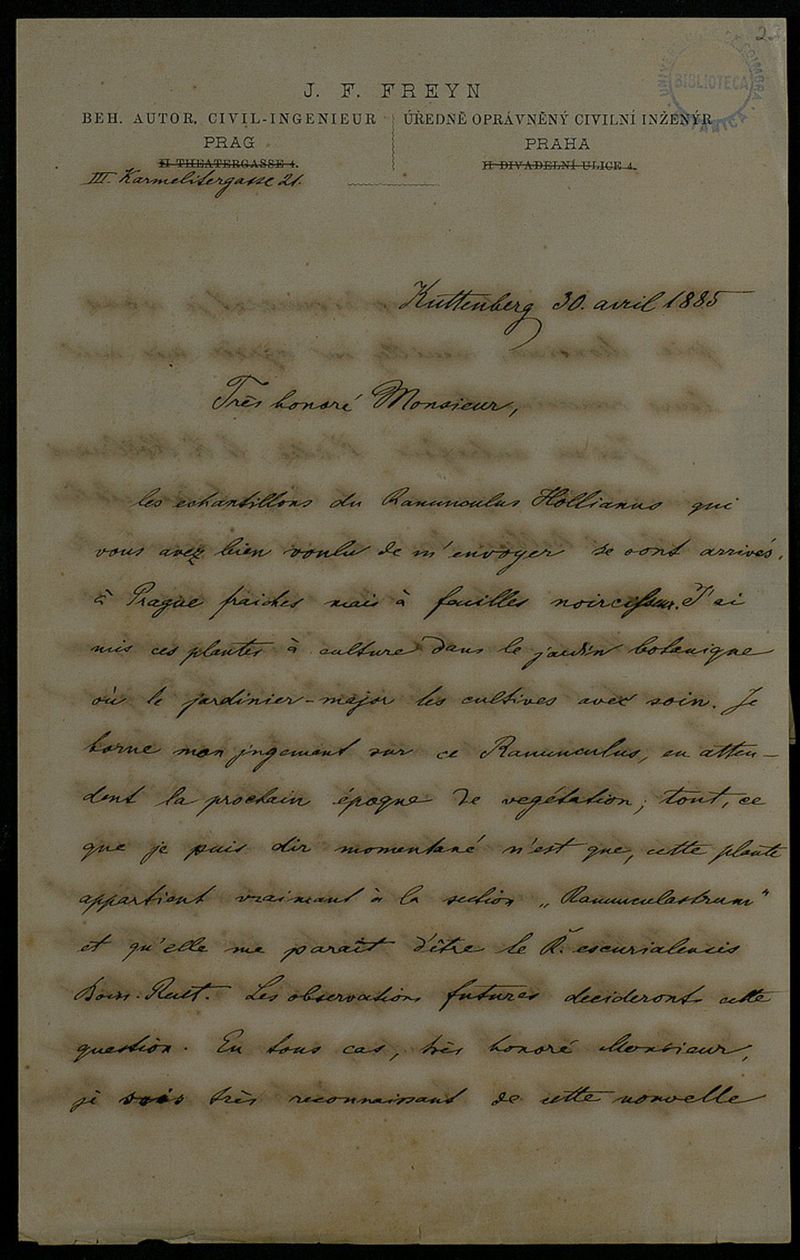 2
BIBLIOTECA
J. F. FREYN
BEH. AUTOR. CIVIL-INGENIEUR
PRAG
II THEATERGASSE 4.
III. Karmelitergasse 21.
ÚŘEDNĚ OPRÁVNĚNÝ CIVILNÍ INŽENÝR
PRAHA
II DIVADELNÍ ULICE 4.
Kuttenberg 30. avril 1885
Très honoré Monsieur,
les echantillons du Ranunculus Hollianus qui
vous avez bien voulu de m'envoyer se sont arrivés,
à Prague fraiches mais à feuilles J'ai
mis ces plantes à culture dans le jardin botanique
où le jardinier-major les cultives avec soin. Je
borne mon jugement sur ce Ranunculus, en atten-
dent la prochain époque de vegétation; tout, ce
que je puis dir momentané n'est que, cette plante
appartient vraimant à la section „Ranunculastrum"
et qu'elle me paraît d'être le R. escurialensis
Boiss. Reut. Les observations futures decideront cette
question. En tous cas, très honoré Monsieur,
je suis très reconnaissant de cette nouvelle